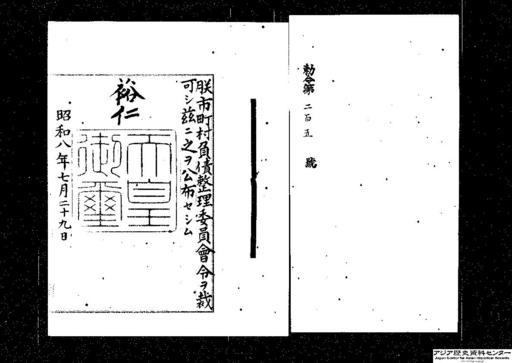 勅令第二百五號
朕市町村負債整理委員會令ヲ裁
可シ茲ニ之ヲ公布セシム
裕仁
天皇御璽
昭和八年七月二十九日
アジア歴史資料センター
Japan Center for Asian Historical Records